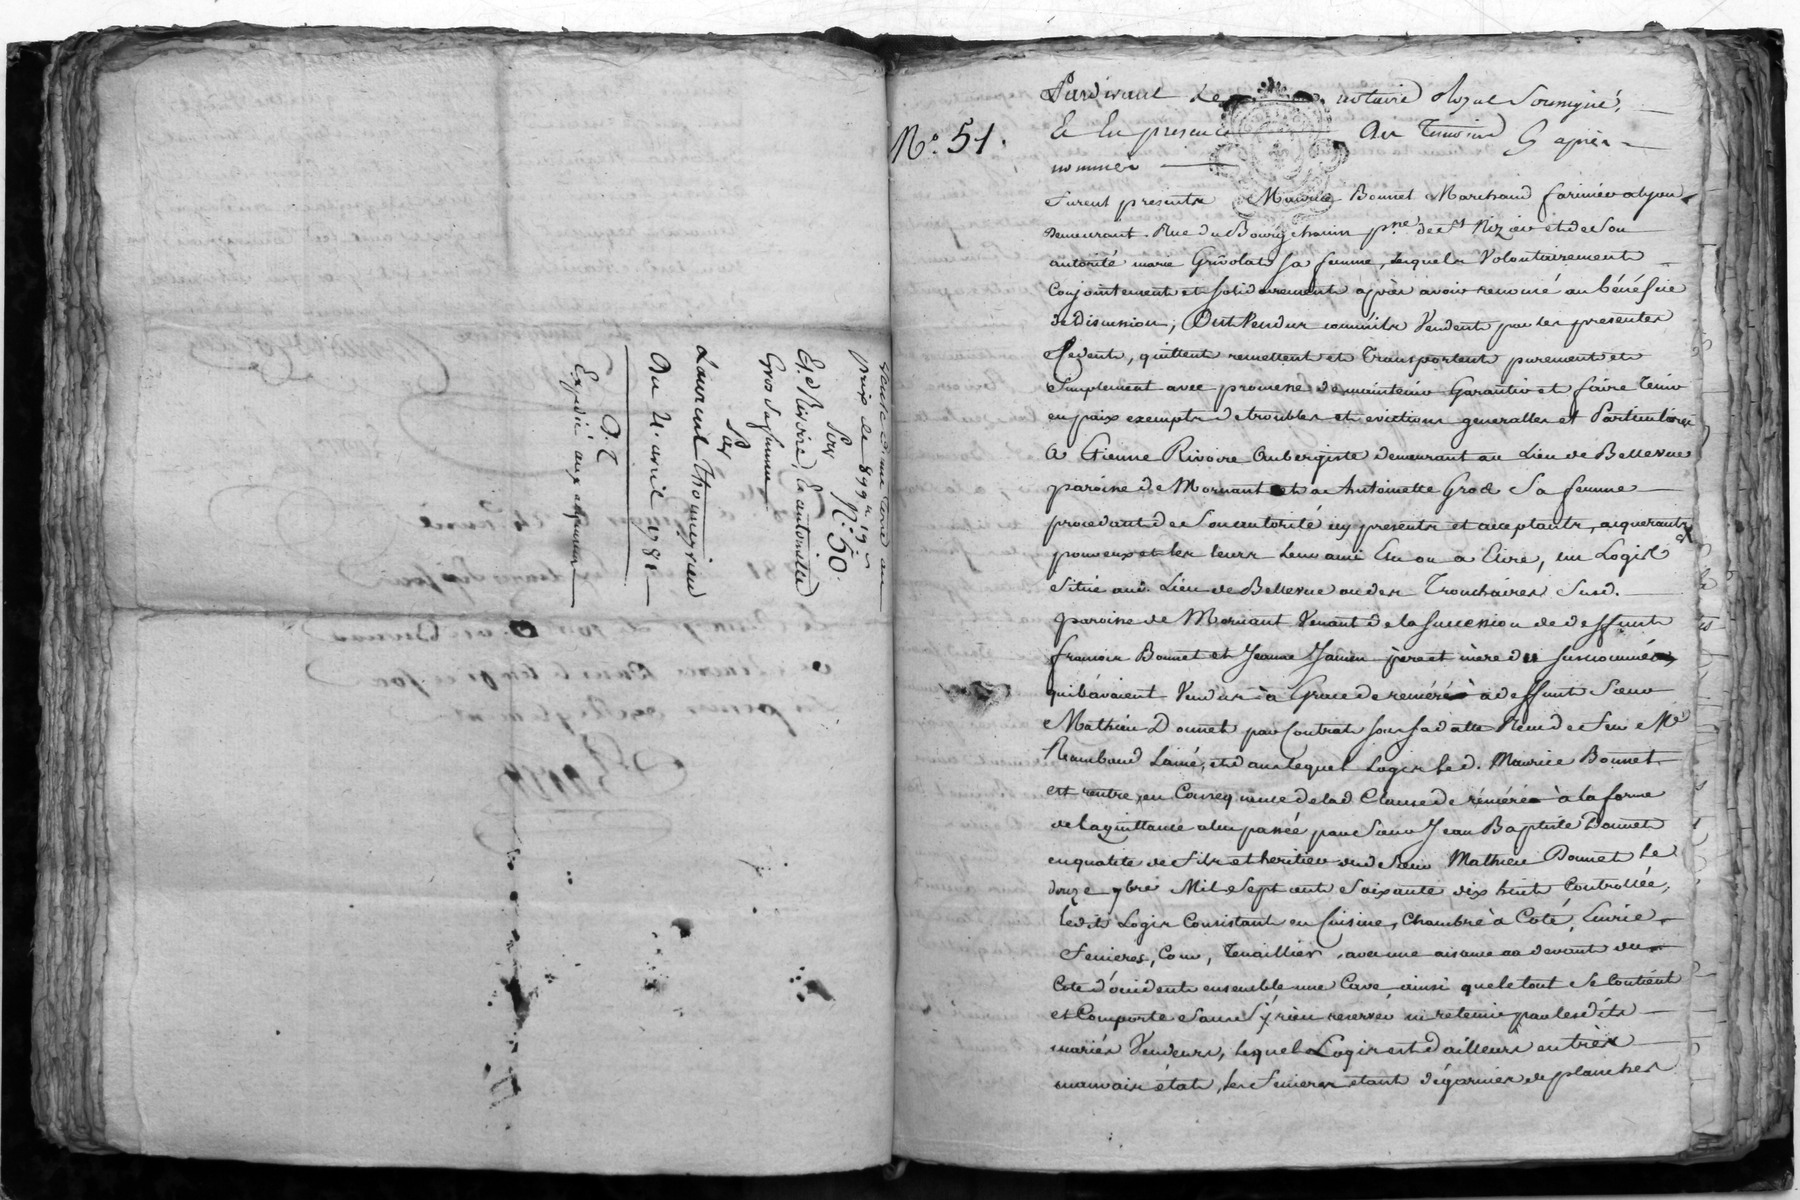 vente d'une terre au
prix de 899 ₶ 19 s
N.° 50.
Pour
Et. Rivoire, & antoinette
Gros sa femme
Par
Laurent Thomeyrieu
Du 21. avril 1781
D. T.
Expedié aux acquereurs
N.° 51.
Pardevant Le notaire Royal Soussigné,
Et En presence des Temoins Cy après
nommés
Furent presents Maurice Bonnet Marchand farinier a Lyon
Demeurant Rue du Bourgchanin psse de St Nizier et de Son
autorité marie Grivolat Sa femme, lesquels Volontairement
Conjointement et solidairement après avoir renoncé au bénéfice
de Discussion, Ont Vendu comme ils Vendent par les presentes
Cedent, quittent remettent et Transportent purement et
Simplement avec promesse de maintenir Garantir et faire Tenir
en paix exempts de troubles et evictions generalles et Particulieres
A Etienne Rivoire Aubergiste demeurant au Lieu de Bellevue
paroisse de Mornant et a Antoinette Gros Sa femme
procedant de Son autorité icy presents et acceptants, acquerants
pour eux et les leurs Leur ami Elu ou a Elire, un Logis
Situé aud. Lieu de Bellevue ou des Tronchaires Susd.
paroisse de Mornant Venant de la Succession de deffunts
francois Bonnet et Jeanne Jamen pere et mere du susnommé
qui l'avaient Vendu à Grace de reméré à deffunt Sieur
Mathieu Donnet par Contrat sous sa datte Reçu de Feu Me
Rambaud L'ainé, et dans lequel Logis led. Maurice Bonnet
est rentré en Consequence de lad Clause de réméré à la forme
de la quittance a lui passée par Sieur Jean Baptiste Donnet
en qualité de fils et heritier dud Sieur Mathieu Donnet Le
douze 9bre Mil Sept cent Soixante dix huit Controllée,
ledit Logis Consistant en Cuisine, Chambre à Coté, Ecurie
Fenieres, Cour, Tenaillier, avec une aisance au devant du
Coté d'occident ensemble une Cave, ainsi que le tout Se Contient
et Comporte Sans S'y rien reserver ni retenir par lesdits
mariés Vendeurs, lequel Logis est d'ailleurs en très
mauvais état, les Fenieres etant dégarnies de planches